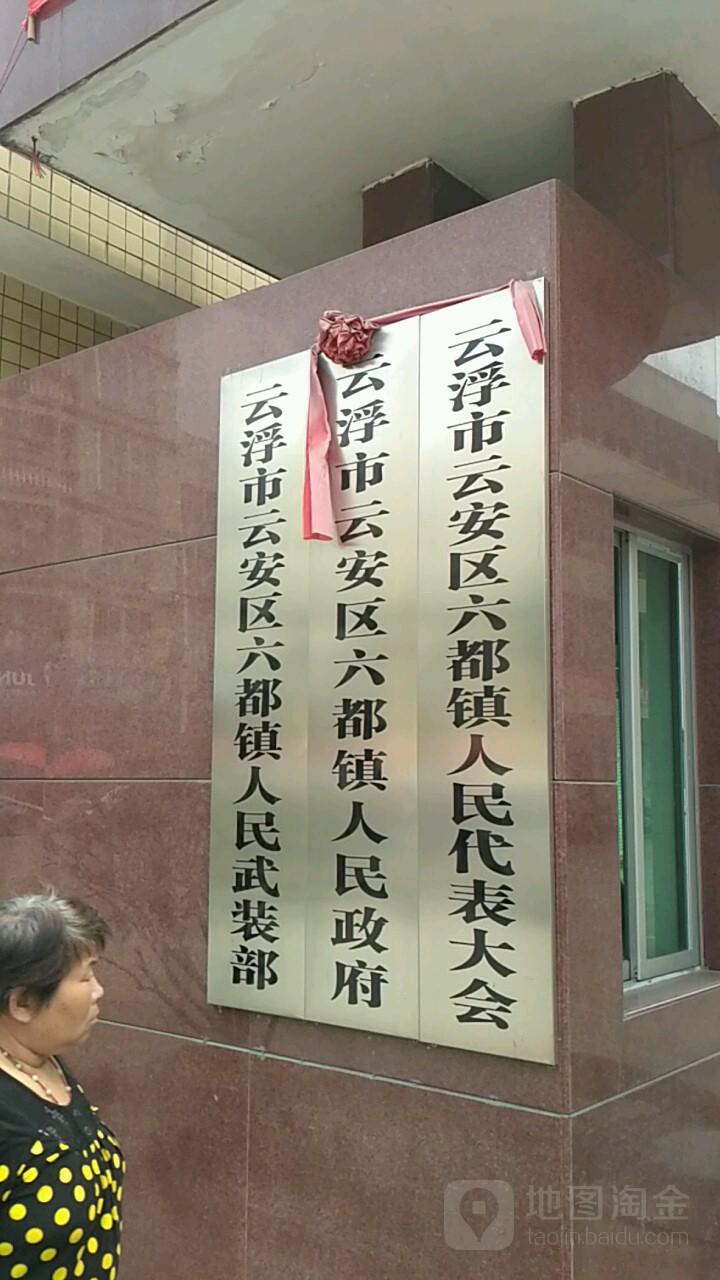 云浮市云安区六都镇人民代表大会
云浮市云安区六都镇人民政府
云浮市云安区六都镇人民武装部
地图淘金
taojin.baidu.com